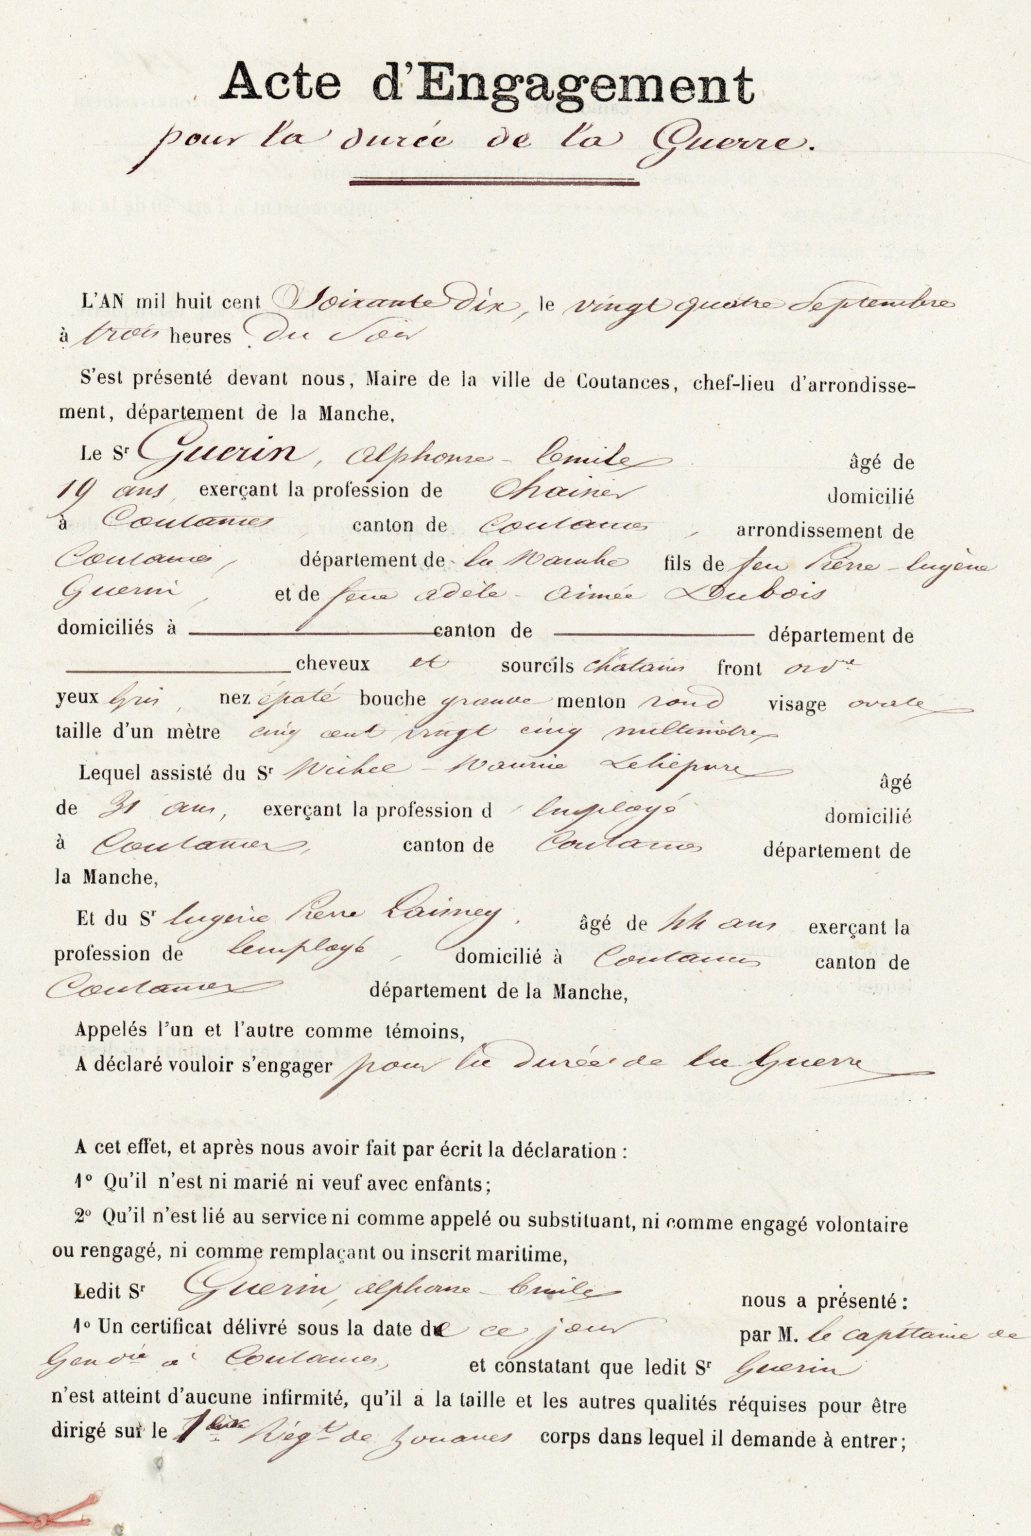 Acte d'Engagement
pour la durée de la Guerre.
L'AN mil huit cent Soixante Dix, le vingt quatre Septembre
à trois heures Du Soir
S'est présenté devant nous, Maire de la ville de Coutances, chef-lieu d'arrondisse-
ment, département de la Manche,
Le Sr Guerin, Alphonse - Emile âgé de
19 ans, exerçant la profession de domicilié
à Coutances, canton de Coutances, arrondissement de
Coutances, département de la Manche fils de feu Pierre - Eugène
Guerin, et de feue Adèle - Aimée Dubois
domiciliés à canton de département de
cheveux et sourcils châtains front ordre
yeux Gris, nez épaté bouche grande menton rond visage ovale
taille d'un mètre cinq cent vingt cinq millimètres
Lequel assisté du Sr Michel - Maurice âgé
de 31 ans, exerçant la profession d'Employé domicilié
à Coutances, canton de Coutances département de
la Manche,
Et du Sr Eugène Pierre Laisney, âgé de 44 ans exerçant la
profession de Employé, domicilié à Coutances canton de
Coutances département de la Manche,
Appelés l'un et l'autre comme témoins,
A déclaré vouloir s'engager pour la durée de la Guerre
A cet effet, et après nous avoir fait par écrit la déclaration :
1º Qu'il n'est ni marié ni veuf avec enfants;
2º Qu'il n'est lié au service ni comme appelé ou substituant, ni comme engagé volontaire
ou rengagé, ni comme remplaçant ou inscrit maritime,
Ledit Sr Guerin, Alphonse - Emile nous a présenté :
1º Un certificat délivré sous la date de ce jour par M. le capitaine de
Gendie à Coutances, et constatant que ledit Sr Guerin
n'est atteint d'aucune infirmité, qu'il a la taille et les autres qualités réquises pour être
dirigé sur le Régt de Zouaves corps dans lequel il demande à entrer;